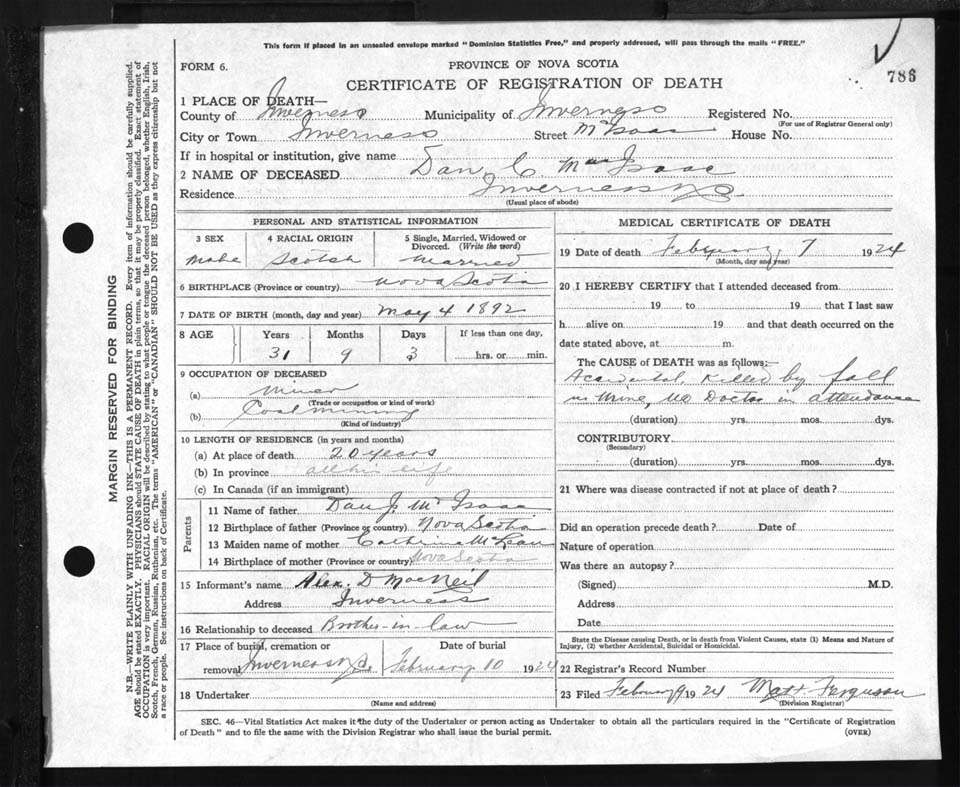 This form if placed in an unsealed envelope marked "Dominion Statistics Free," and properly addressed, will pass through the mails "FREE."
FORM 6.
PROVINCE OF NOVA SCOTIA
786
CERTIFICATE OF REGISTRATION OF DEATH
1 PLACE OF DEATH—
County of Inverness Municipality of Inverness Registered No.
(For use of Registrar General only)
City or Town Inverness Street McIsaac House No.
If in hospital or institution, give name
2 NAME OF DECEASED Dan C MacIsaac
Residence Inverness
(Usual place of abode)
PERSONAL AND STATISTICAL INFORMATION
3 SEX 4 RACIAL ORIGIN 5 Single, Married, Widowed or Divorced. (Write the word)
Male Scotch Married
6 BIRTHPLACE (Province or country) Nova Scotia
7 DATE OF BIRTH (month, day and year) May 4 1892
8 AGE Years Months Days If less than one day,
31 9 3 hrs. or min.
9 OCCUPATION OF DECEASED
(a) Miner
(Trade or occupation or kind of work)
(b) Coal mining
(Kind of industry)
10 LENGTH OF RESIDENCE (in years and months)
(a) At place of death 20 years
(b) In province all his life
(c) In Canada (if an immigrant)
Parents
11 Name of father Dan J. McIsaac
12 Birthplace of father (Province or country) Nova Scotia
13 Maiden name of mother Catherine McLean
14 Birthplace of mother (Province or country) Nova Scotia
15 Informant's name Alex. D MacNeil
Address Inverness
16 Relationship to deceased Brother-in-law
17 Place of burial, cremation or Date of burial
removal Inverness February 10 1924
18 Undertaker
(Name and address)
MEDICAL CERTIFICATE OF DEATH
19 Date of death February 7 1924
(Month, day and year)
20 I HEREBY CERTIFY that I attended deceased from
19 to 19 that I last saw
h alive on 19 and that death occurred on the
date stated above, at m.
The CAUSE of DEATH was as follows:—
Accidental, Killed by fall
in Mine, No Doctor in attendance
(duration) yrs. mos. dys.
CONTRIBUTORY
(Secondary)
(duration) yrs. mos. dys.
21 Where was disease contracted if not at place of death?
Did an operation precede death? Date of
Nature of operation
Was there an autopsy?
(Signed) M.D.
Address
Date
State the Disease causing Death, or in death from Violent Causes, state (1) Means and Nature of
Injury, (2) whether Accidental, Suicidal or Homicidal.
22 Registrar's Record Number
23 Filed February 9 1924 Matt. Ferguson
(Division Registrar)
SEC. 46—Vital Statistics Act makes it the duty of the Undertaker or person acting as Undertaker to obtain all the particulars required in the "Certificate of Registration
of Death" and to file the same with the Division Registrar who shall issue the burial permit.
(OVER)
MARGIN RESERVED FOR BINDING
N.B.—WRITE PLAINLY WITH UNFADING INK—THIS IS A PERMANENT RECORD. Every item of information should be carefully supplied.
AGE should be stated EXACTLY. PHYSICIANS should STATE CAUSE OF DEATH in plain terms, so that it may be properly classified. Exact statement of
OCCUPATION is very important. RACIAL ORIGIN will be described by stating to what people or tongue the deceased person belonged, whether English, Irish,
Scotch, French, German, Russian, Ruthenian, etc. The terms "AMERICAN" or "CANADIAN" SHOULD NOT BE USED as they express citizenship but not
a race or people. See instructions on back of Certificate.